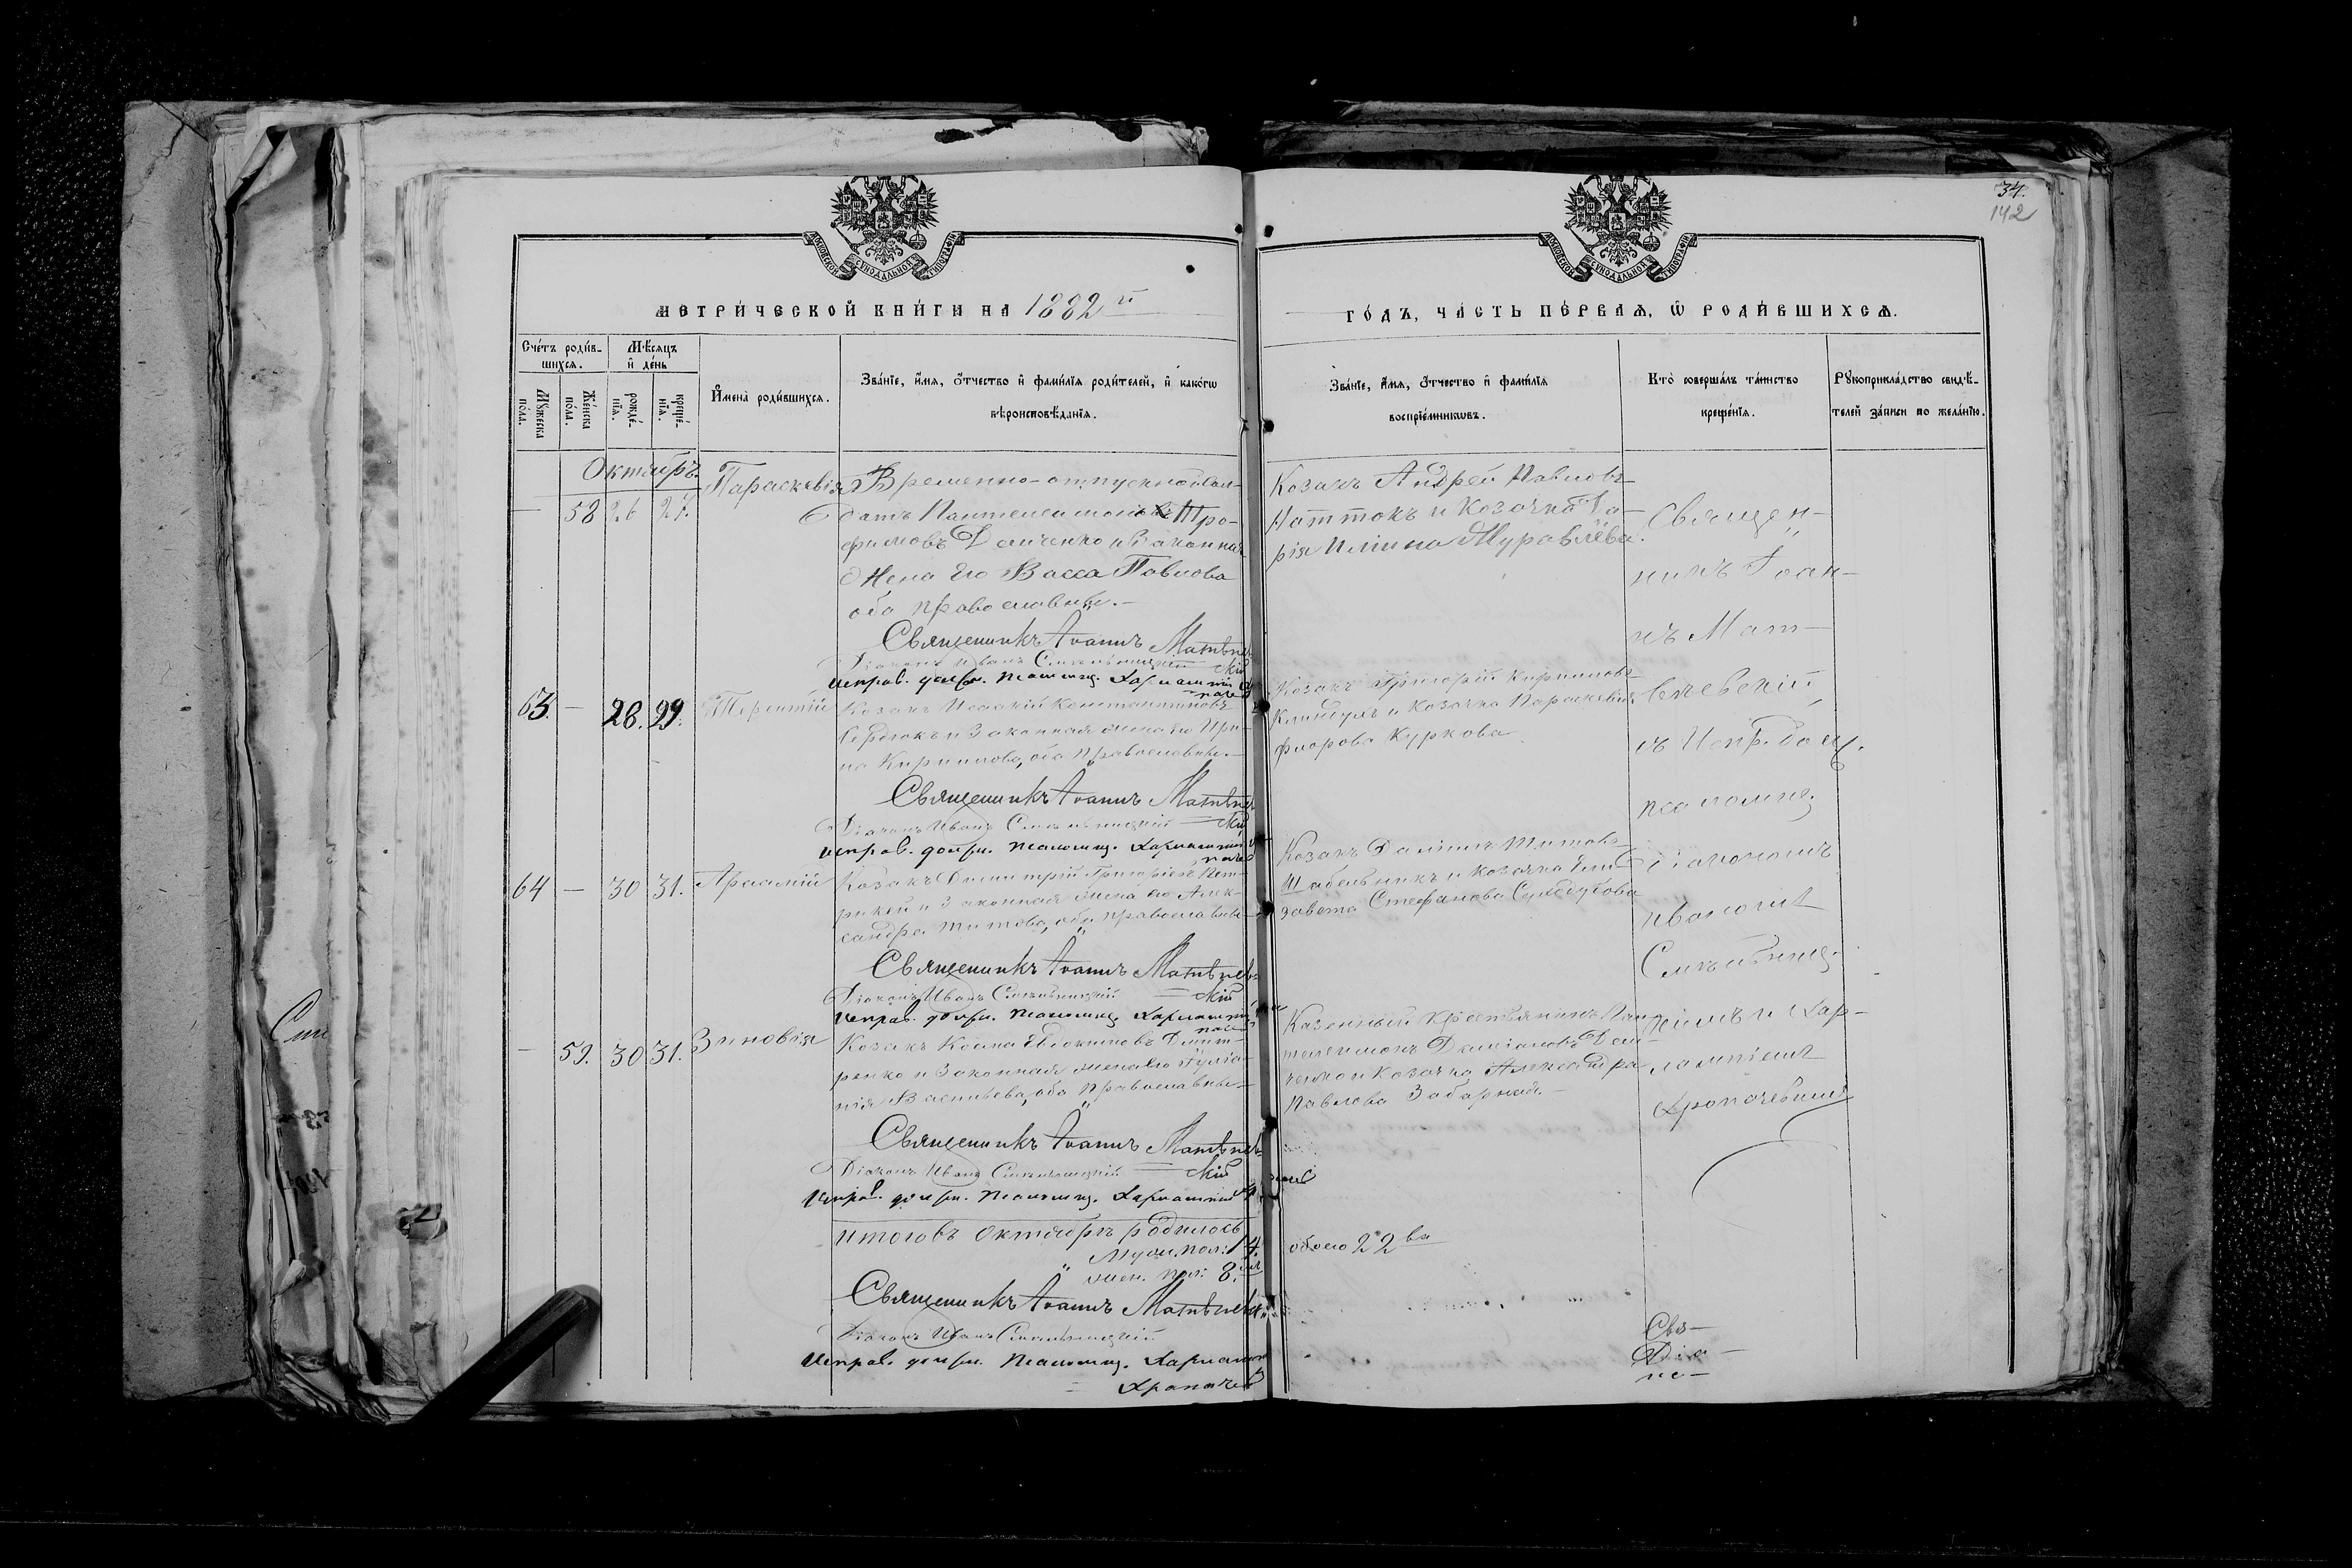 34.
142
МОСКОВСКОЙ СѴНОДАЛЬНОЙ ТИПОГРАФІИ
МОСКОВСКОЙ СѴНОДАЛЬНОЙ ТИПОГРАФІИ
МЕТРИ́ЧЕСКОЙ КНИ́ГИ НА 1882 й
ГО́ДЪ, ЧА́СТЬ ПЕ́РВАЯ, Ѡ РОДИ́ВШИХСЯ.
Сче́тъ роди́в-
шихся.
Мꙋжеска по́ла.
Же́нска по́ла.
Мѣ́сяцъ
и̂ де́нь
рожде́-
нїя.
креще́-
нїя.
И̂мена̀ роди́вшихся.
Зва́нїе, и́мя, ѻ́тчество и̂ фами́лїя роди́телей, и̂ како́гѡ
вѣроисповѣ́данїя.
Зва́нїе, и́мя, ѻ́тчество и̂ фами́лїя
воспрїе́мникѡвъ.
Кто̀ соверша́лъ та́инство
креще́нїя.
Рꙋкоприкла́дство свидѣ́-
телей за́писи по жела́нїю.
Октябрь
— 58 26 27.
Параскевія
Временно-отпускной сол-
датъ Пантелеимонъ Тро-
фимовъ Демченко и законная
жена его Васса Павлова
оба православные.—
Священникъ Іоаннъ Матвѣев-
скій
Діаконъ Иванъ
Исправ. долж. псаломщ. Харлампій
Козакъ Андрей Павловъ
Наттокъ и Козачка Да-
рія Ильина Муравлёва.
Священ-
никъ Іоан-
нъ Мат-
вѣевскій
съ Испр. долж.
псаломщ.
Діакономъ
Иваномъ
и Хар-
лампіемъ
Хропачевымъ
63. — 28. 29.
Терентій
Козакъ Исаакій Константиновъ
Сердюкъ и законная жена его Ири-
на Кириллова, оба православные.—
Священникъ Іоаннъ Матвѣев-
скій
Діаконъ Иванъ
Исправ. долж. псаломщ. Харлампій
Козакъ Григорій Кирилловъ
и Козачка Параскевія
Флорова Куркова
64 — 30 31.
Арсеній
Козакъ Димитрій Григорьевъ Пет-
рикей и законная жена его Алек-
сандра Титова, оба православные—
Священникъ Іоаннъ Матвѣев-
скій
Діаконъ Иванъ
Исправ. долж. псаломщ. Харлампій
Козакъ Даніилъ Титовъ
Шабельникъ и козачка Ели-
завета Стефанова Суходубова
— 59. 30 31.
Зиновія
Козакъ Косма Евдокимовъ Дмит-
ренко и законная жена его Іуліа-
нія Васильева, оба православные—
Священникъ Іоаннъ Матвѣев-
скій
Діаконъ Иванъ
Исправ. долж. псаломщ. Харлампій
Казенный крестьянинъ Пан-
телеимонъ Даміановъ Дем-
ченко и козачка Александра
Павлова Забарная.—
Итого въ Октябрѣ родилось
Муж. пол. 14.
жен. пол. 8.
обоего 22 ва
Священникъ Іоаннъ Матвѣевскій
Діаконъ Иванъ
Исправ. долж. псаломщ. Харлампій
Хропачев
Свя—
Діа—
пс—